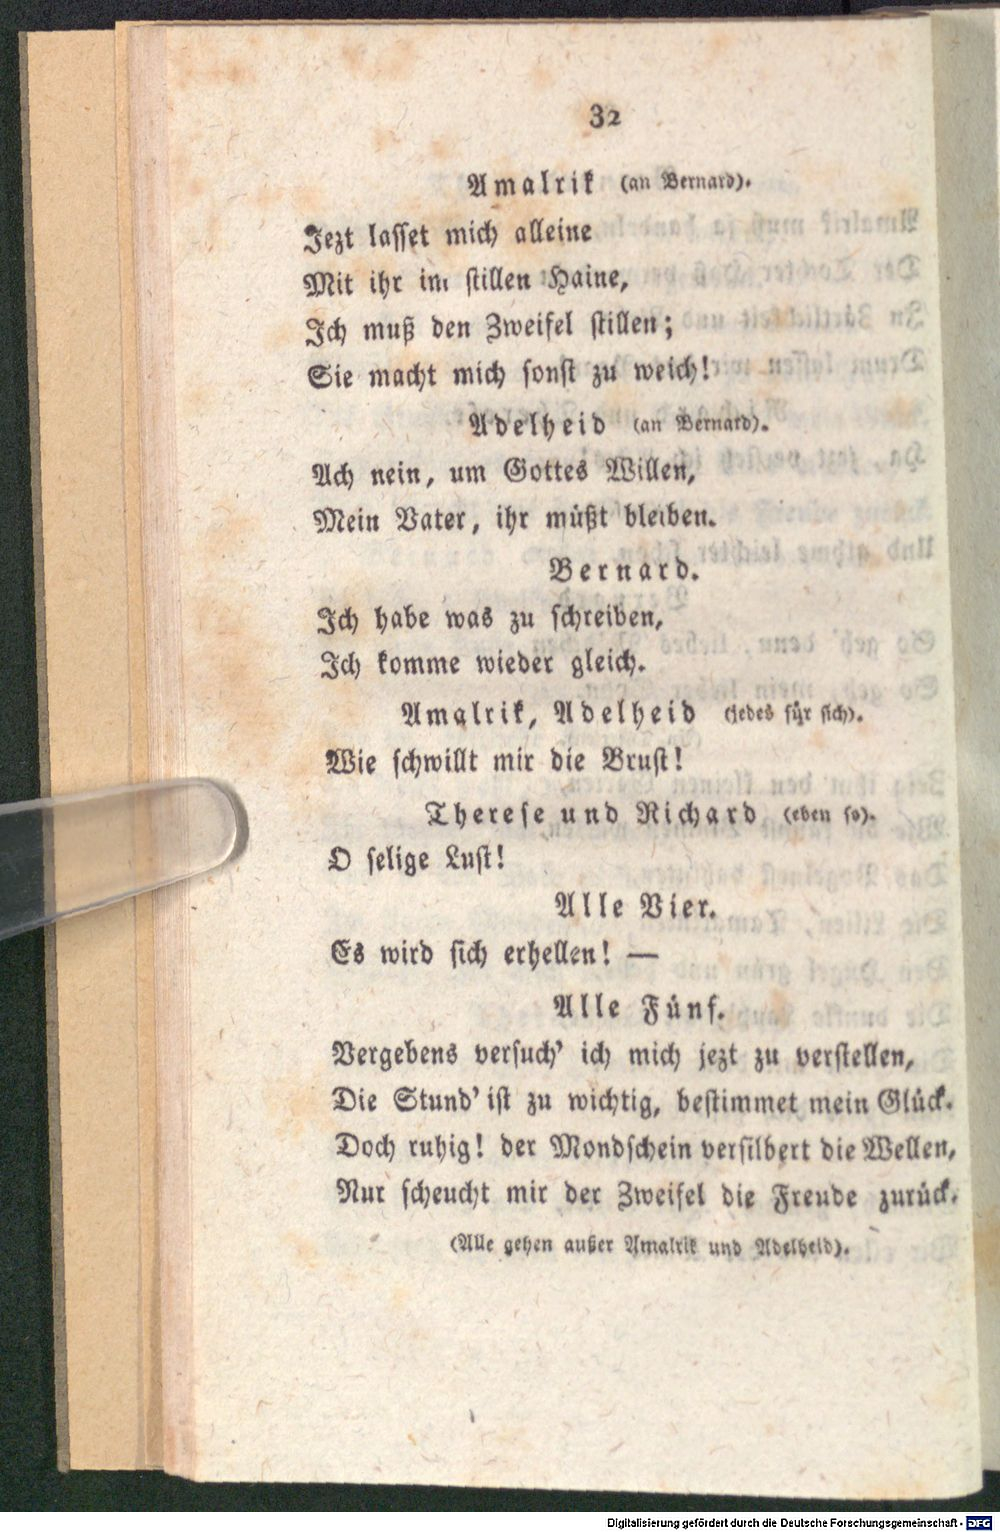 32
Amalrik (an Bernard).
Jezt lasset mich alleine
Mit ihr im stillen Haine,
Ich muß den Zweifel stillen;
Sie macht mich sonst zu weich!
Adelheid (an Bernard).
Ach nein, um Gottes Willen,
Mein Vater, ihr müßt bleiben.
Bernard.
Ich habe was zu schreiben,
Ich komme wieder gleich.
Amalrik, Adelheid (jedes für sich).
Wie schwillt mir die Brust!
Therese und Richard (eben so).
O selige Lust!
Alle Vier.
Es wird sich erhellen! —
Alle Fünf.
Vergebens versuch' ich mich jezt zu verstellen,
Die Stund' ist zu wichtig, bestimmet mein Glück.
Doch ruhig! der Mondschein versilbert die Wellen,
Nur scheucht mir der Zweifel die Freude zurück.
(Alle gehen außer Amalrik und Adelheid).
Digitalisierung gefördert durch die Deutsche Forschungsgemeinschaft - DFG